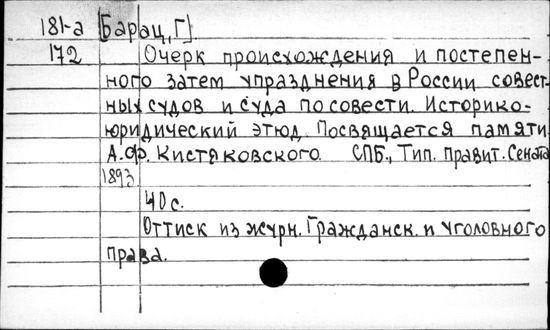 181-а [Барац, Г]
172 Очерк происхождения и постепен-
ного затем упразднения в России совест-
ных судов и суда по совести. Историко-
юридический этюд. Посвящается памяти
А.Ф. Кистяковского. СПБ., Тип. Правит. Сената
1893
40 с.
Оттиск из журн. Гражданск. и уголовного
права.